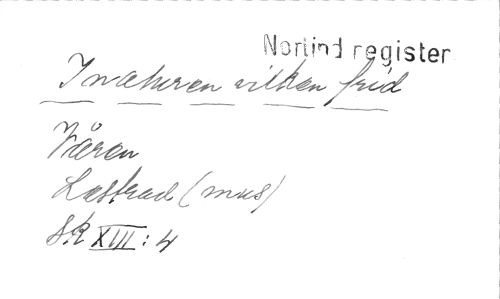 Norlind register
I naturen vilken frid
Våren
Lastrad (mus)
SK XIII : 4